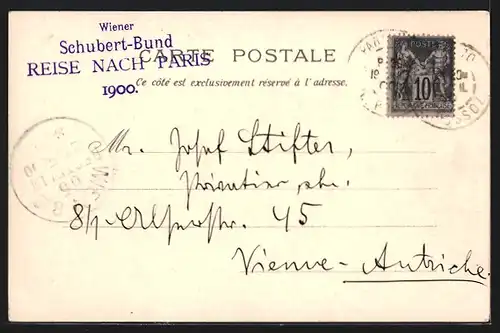 Wiener
Schubert-Bund
REISE NACH PARIS
1900.
CARTE POSTALE
Ce côté est exclusivement réservé à l'adresse.
POSTE
10
Mr. Josef Stifter,
Privatier
8/1 45
Vienne - Autriche.